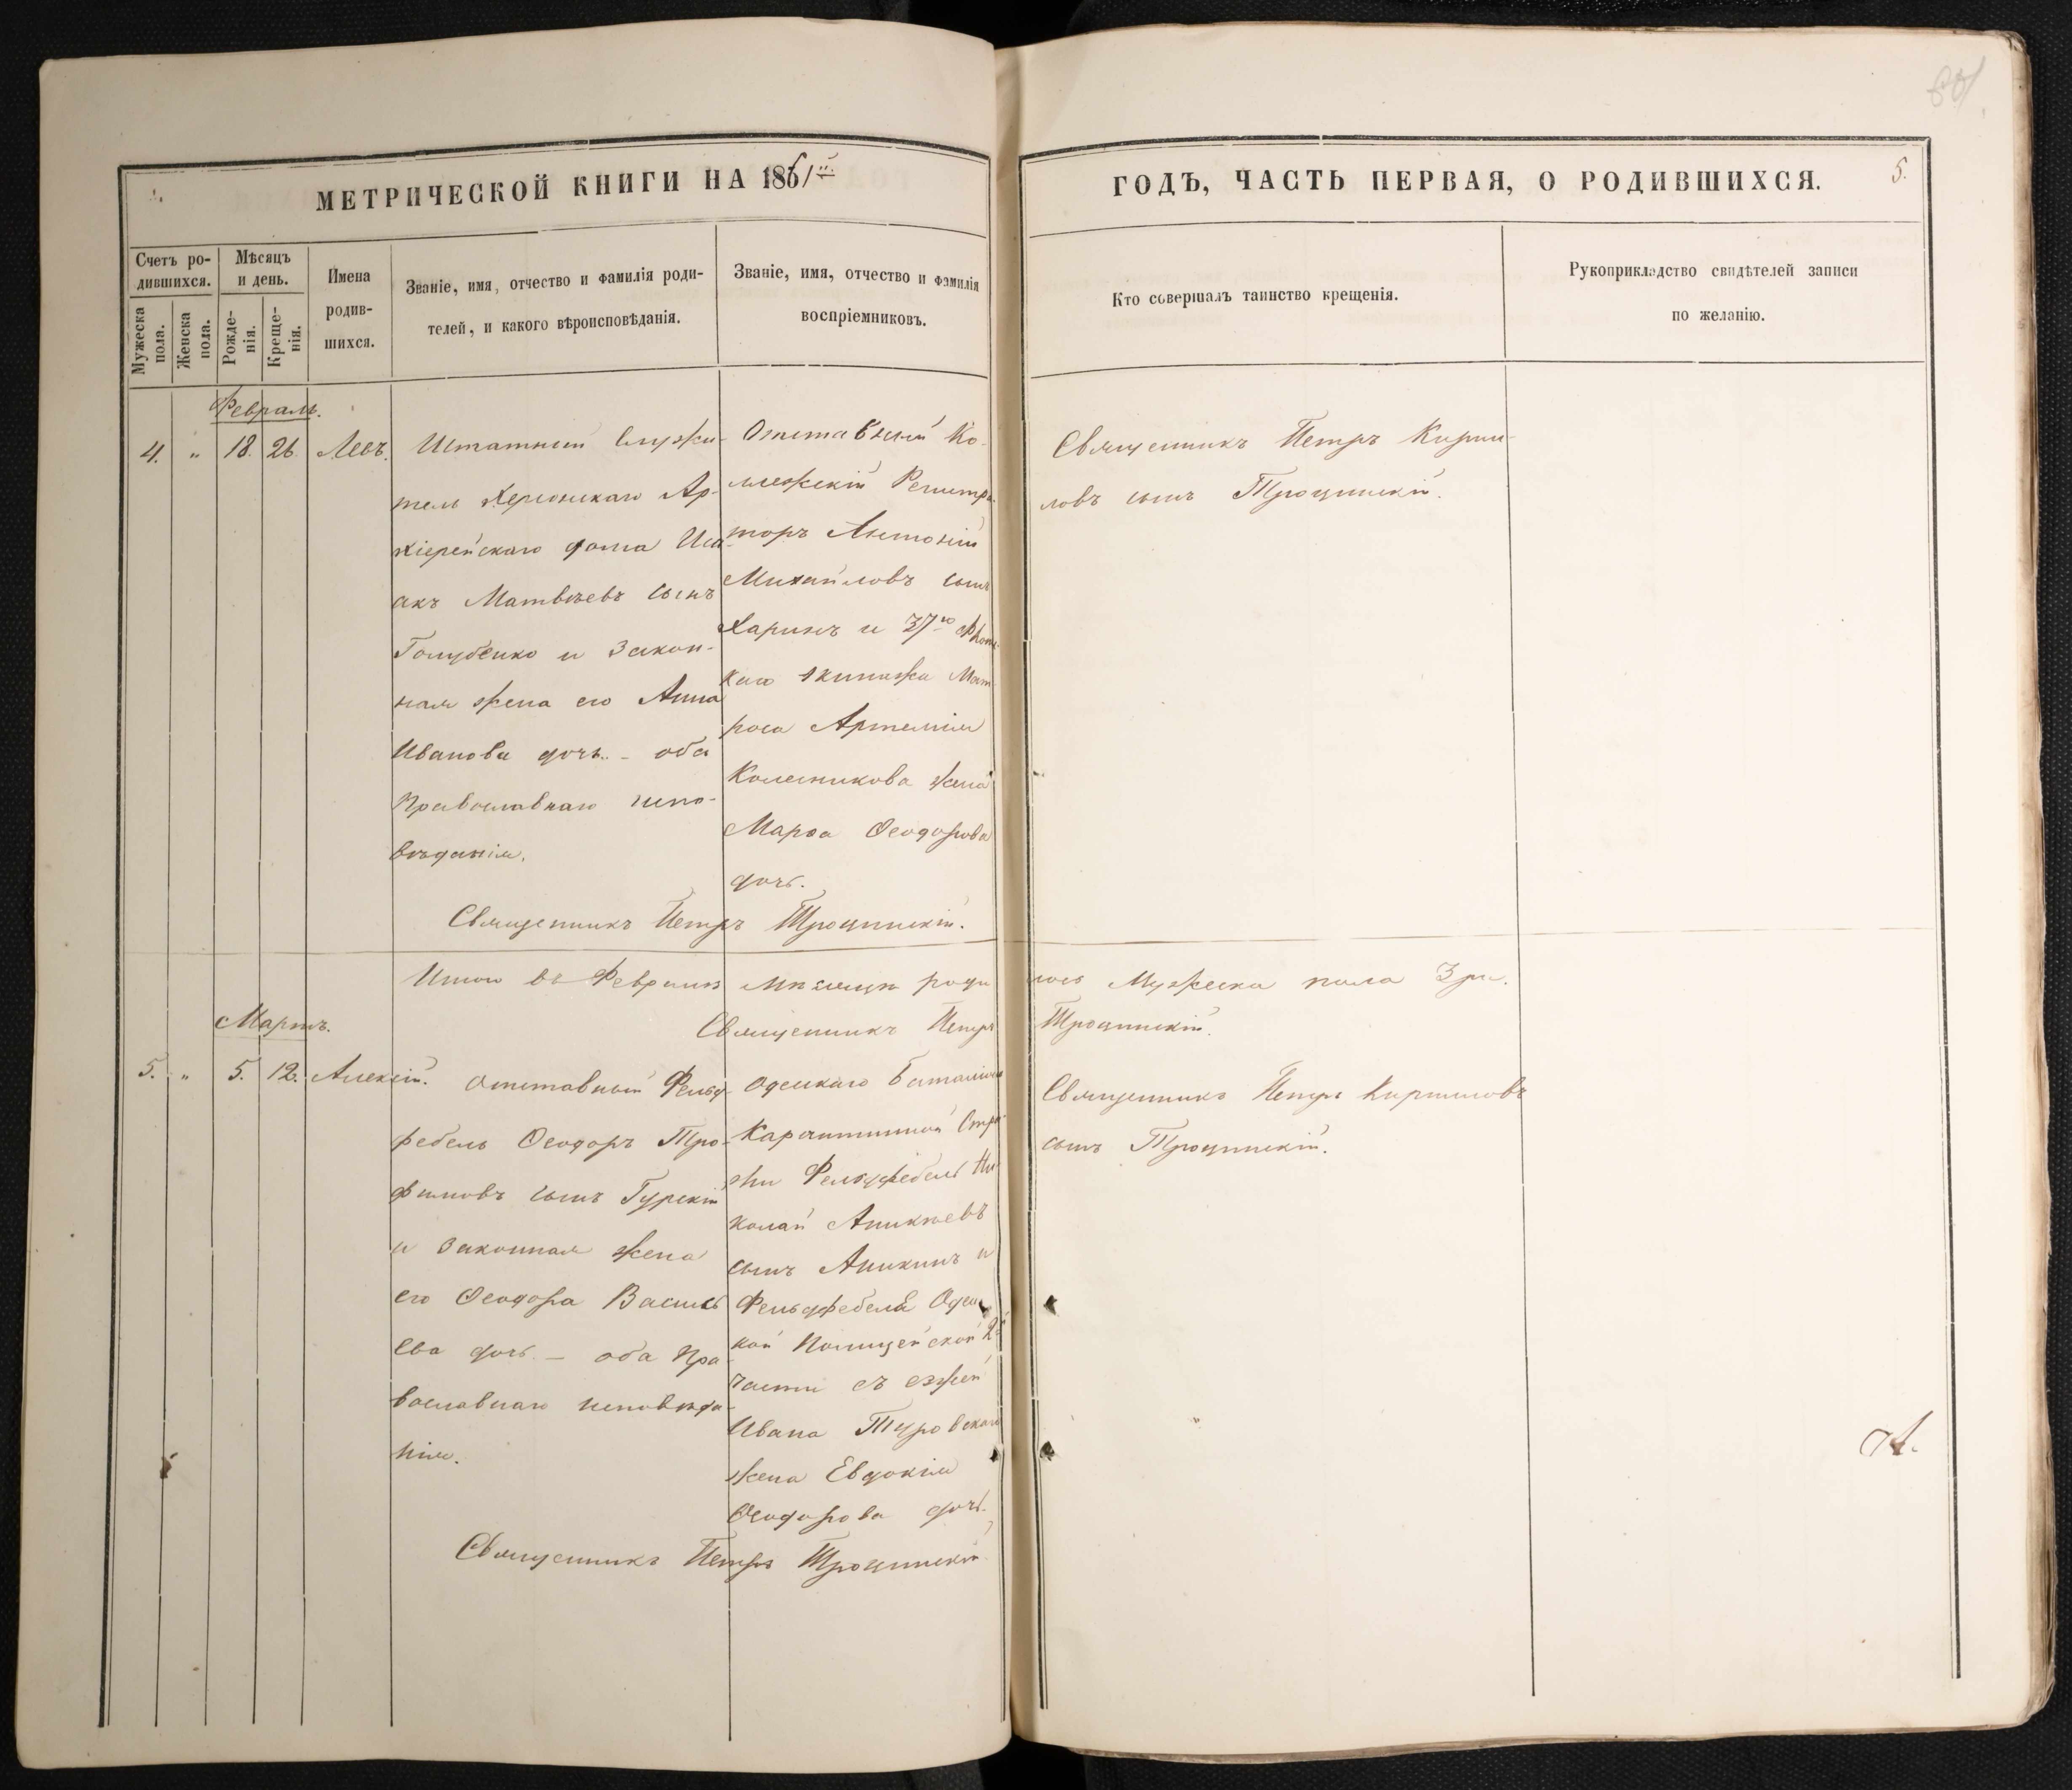 МЕТРИЧЕСКОЙ КНИГИ НА 1861й
ГОДЪ, ЧАСТЬ ПЕРВАЯ, О РОДИВШИХСЯ.
5.
Счетъ ро-
дившихся.
Мужеска
пола.
Женска
пола.
Мѣсяцъ
и день.
Рожде-
нія.
Креще-
нія.
Имена
родив-
шихся.
Званіе, имя, отчество и фамилія роди-
телей, и какого вѣроисповѣданія.
Званіе, имя, отчество и фамилія
воспріемниковъ.
Кто совершалъ таинство крещенія.
Рукоприкладство свидѣтелей записи
по желанію.
Февраль.
4. " 18. 26. Левъ.
Штатный Служи-
тель Херсонскаго Ар-
хіерейскаго дома Иса-
акъ Матвѣевъ сынъ
Голубенко и Закон-
ная жена его Анна
Иванова дочь. - оба
Православнаго испо-
вѣданія.
Отставный Ко-
лежскій Регистра-
торъ Антоній
Михайловъ сынъ
Харинъ и 37го Флотс-
каго экипажа Мат-
роса Артемія
Колесникова жена
Марѳа Ѳеодорова
дочь.
Священникъ Петръ Кирил-
ловъ сынъ Троцинскій.
Священникъ Петръ Троцинскій.
Итого въ Февралѣ мѣсяцѣ роди лось Мужеска пола 3 ри.
Священникъ Петръ Троцинскій.
Мартъ.
5. " 5. 12. Алексій.
Отставный Фельд-
фебель Ѳеодоръ Тро-
фимовъ сынъ Гурскій
и Законная жена
его Ѳеодора Василь
ева дочь - оба Пра-
вославнаго исповѣда-
нія.
Одескаго Баталіона
Карантинной Стра-
жи Фельдфебель Ни-
колай Аникѣевъ
сынъ Аникинъ и
Фельдфебеля Одес
кой Полицейской 2й
части съѣзжей
Ивана Туровскаго
жена Евдокія
Ѳеодорова дочь.
Священникъ Петръ Кирилловъ
сынъ Троцинскій.
Священникъ Петръ Троцинскій.